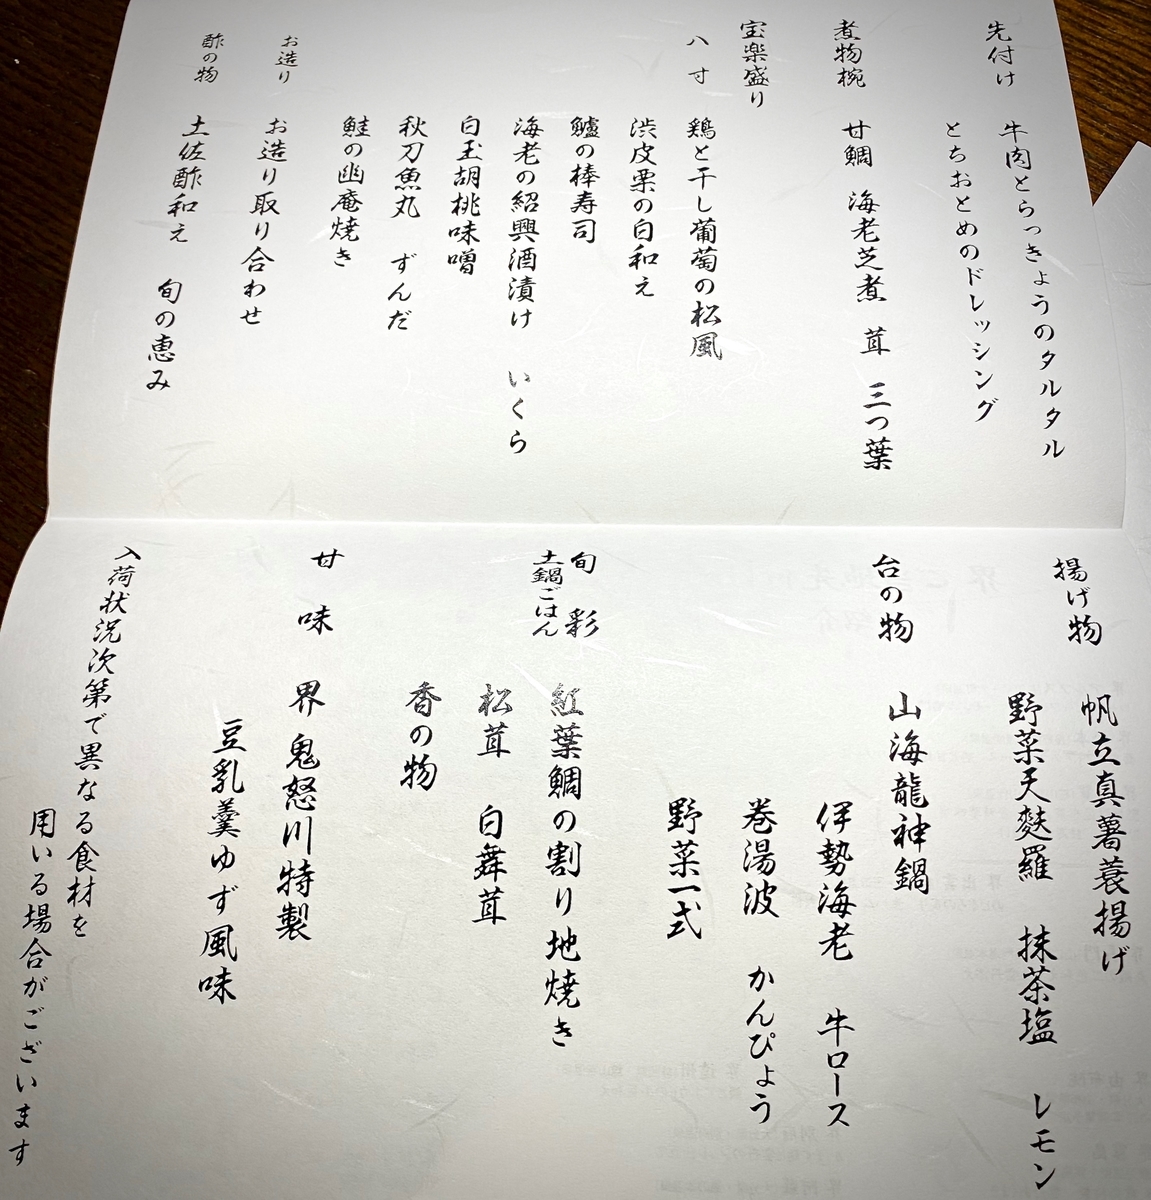 先付け 牛肉とらっきょうのタルタル
とちおとめのドレッシング
煮物椀 甘鯛 海老芝煮 茸 三つ葉
宝楽盛り
八寸 鶏と干し葡萄の松風
渋皮栗の白和え
鱸の棒寿司
海老の紹興酒漬け いくら
白玉胡桃味噌
秋刀魚丸 ずんだ
鮭の幽庵焼き
お造り お造り取り合わせ
酢の物 土佐酢和え 旬の恵み
揚げ物 帆立真薯蓑揚げ
野菜天麩羅 抹茶塩 レモン
台の物 山海龍神鍋
伊勢海老 牛ロース
巻湯波 かんぴょう
野菜一式
旬彩 紅葉鯛の割り地焼き
土鍋ごはん 松茸 白舞茸
香の物
甘味 界 鬼怒川特製
豆乳羹ゆず風味
入荷状況次第で異なる食材を
用いる場合がございます